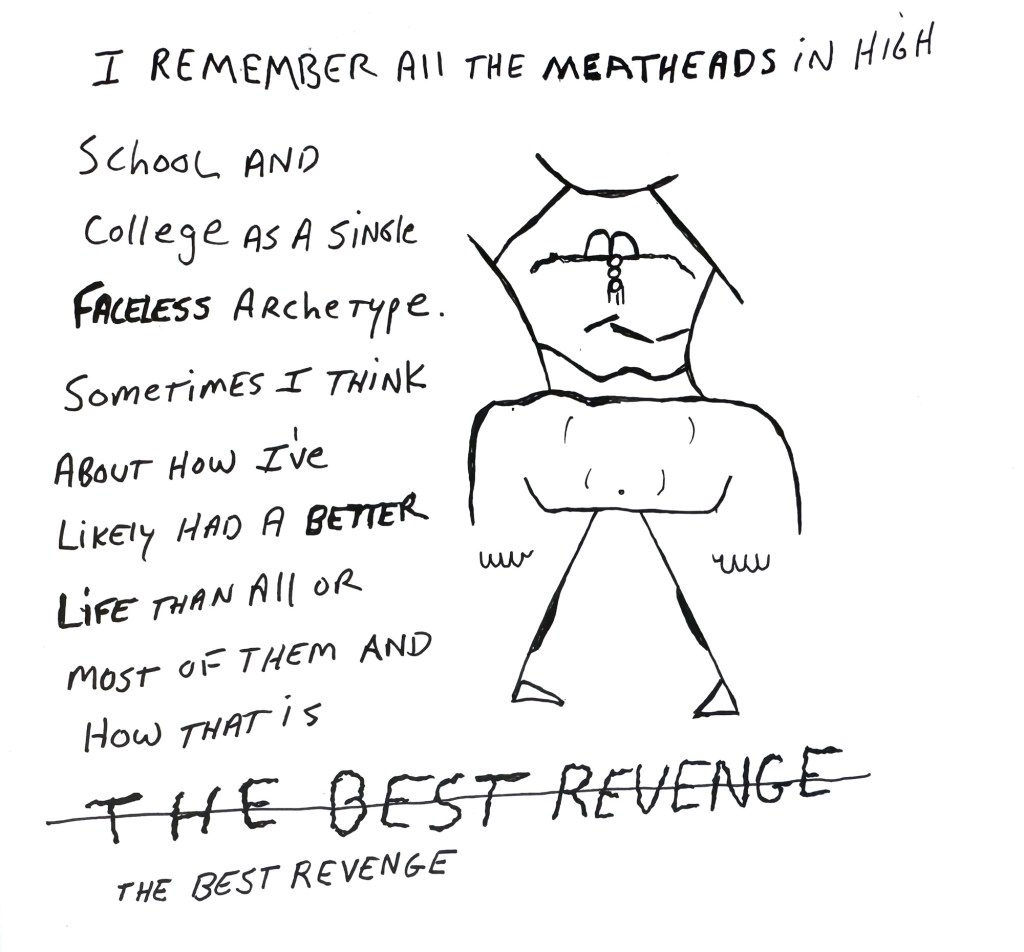 I REMEMBER All THE MEATHEADS iN HiGH
School AND
College AS A SiNGle
FACELESS ArcheType.
SomeTimES I THiNK
ABOUT HOW I've
LiKEly HAD A BETTER
LiFE THAN All OR
MOST OF THEM AND
HOW THAT iS
THE BEST REVENGE
THE BEST REVENGE